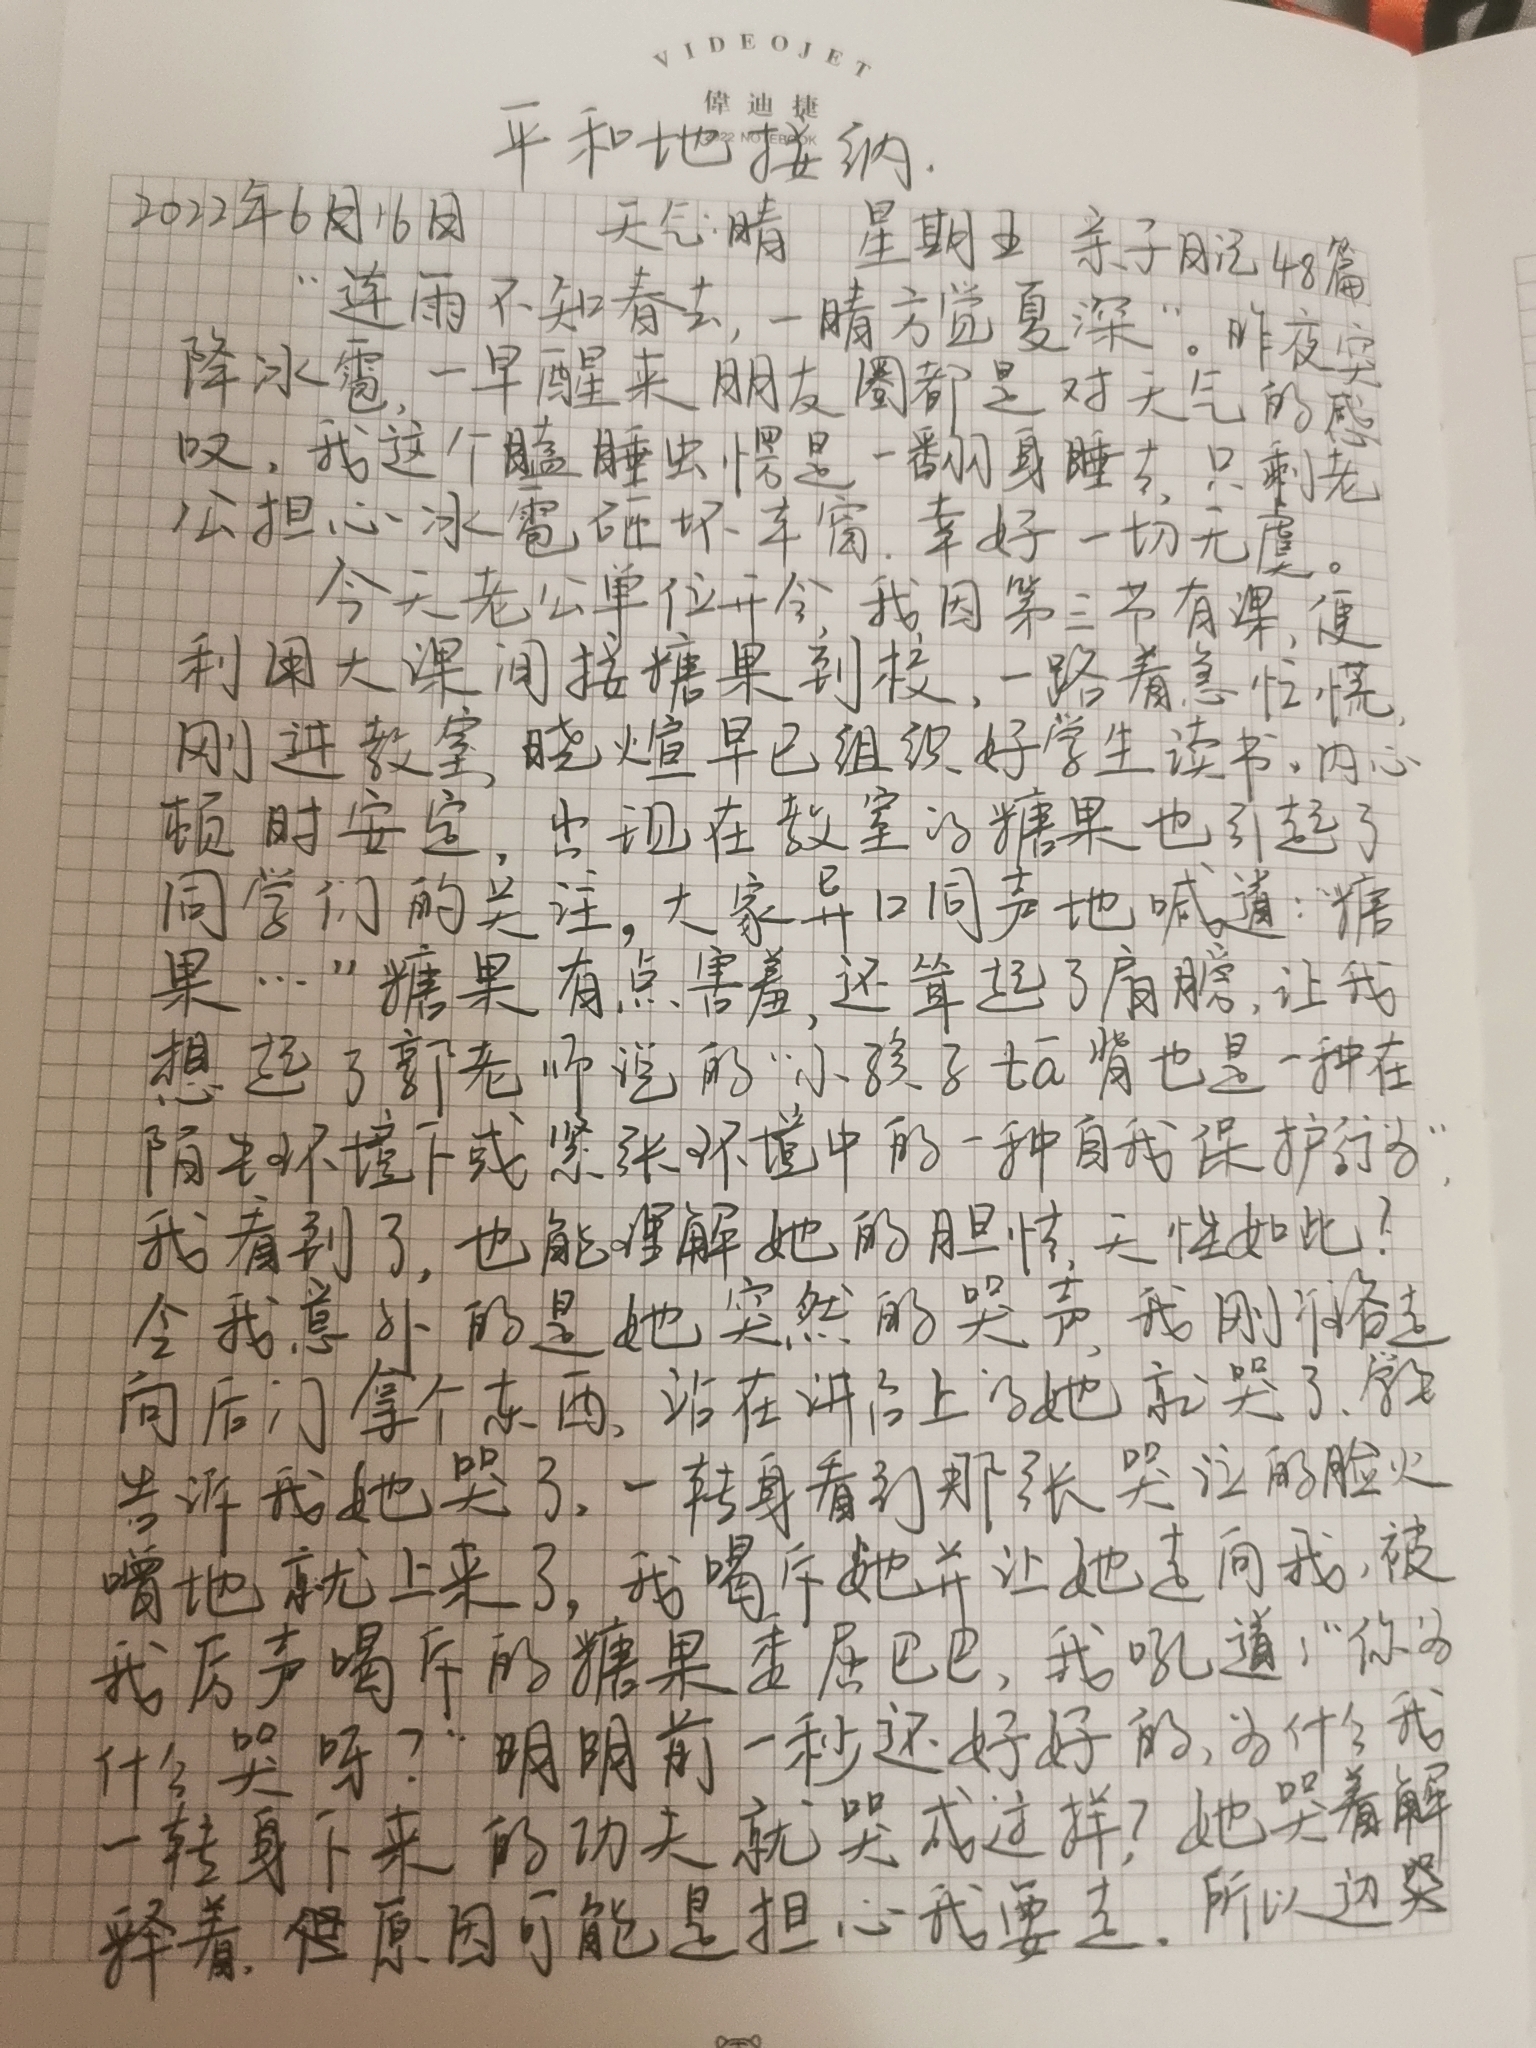 VIDEOJET
偉迪捷
2022 NOTEBOOK
平和地接纳.
2022年6月16日 天气:晴 星期五 亲子日记48篇
“连雨不知春去,一晴方觉夏深”。昨夜突
降冰雹,一早醒来朋友圈都是对天气的感
叹,我这个瞌睡虫愣是一翻身睡去,只剩老
公担心冰雹砸坏车窗.幸好一切无虞。
今天老公单位开会,我因第三节有课,便
利用大课间接糖果到校,一路着急忙慌,
刚进教室,晓煊早已组织好学生读书,内心
顿时安定,出现在教室的糖果也引起了
同学们的关注,大家异口同声地喊道:“糖
果…”糖果有点害羞,还耸起了肩膀,让我
想起了郭老师说的“小孩子tā背也是一种在
陌生环境下或紧张环境中的一种自我保护行为”,
我看到了,也能理解她的胆怯,天性如此?
令我意外的是她突然的哭声,我刚下路走
向后门拿个东西,站在讲台上的她就哭了,学生
告诉我她哭了,一转身看到那张哭泣的脸火
噌地就上来了,我喝斥她并让她走向我,被
我厉声喝斥的糖果委屈巴巴,我吼道:“你为
什么哭呀?”明明前一秒还好好的,为什么我
一转身下来的功夫就哭成这样?她哭着解
释着,但原因可能是担心我要走.所以边哭